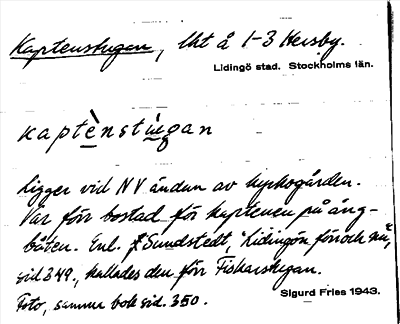 Kaptenstugan, lht å 1-3 Hersby.
Lidingö stad. Stockholms län.
kaptènstùgan
Ligger vid NV ändan av kyrkogården.
Var förr bostad för kaptenen på ång-
båten. Enl. Sundstedt, "Lidingön förr och nu",
sid 349., kallades den förr Fiskarstugan.
Foto, samma bok sid. 350.
Sigurd Fries 1943.